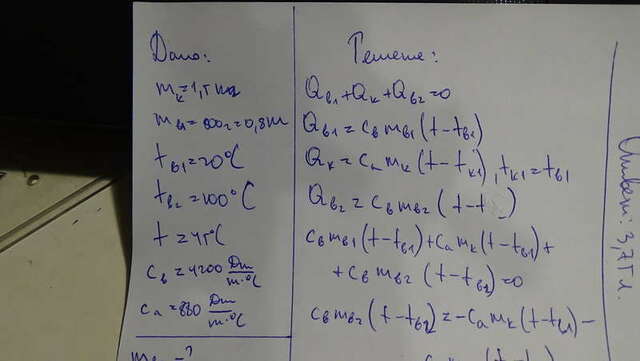 Дано:
mк = 1,5 кг
mв1 = 800г = 0,8кг
tв1 = 20°C
tв2 = 100°C
t = 45°C
cв = 4200 Дж/кг·°C
cа = 880 Дж/кг·°C
mв2 - ?
Решение:
Qв1 + Qк + Qв2 = 0
Qв1 = cв mв1 (t - tв1)
Qк = cа mк (t - tк1), tк1 = tв1
Qв2 = cв mв2 (t - t )
cв mв1 (t - tв1) + cа mк (t - tв1) +
+ cв mв2 (t - tв2) = 0
cв mв2 (t - tв2) = - cа mк (t - tв1) -
Ответ: